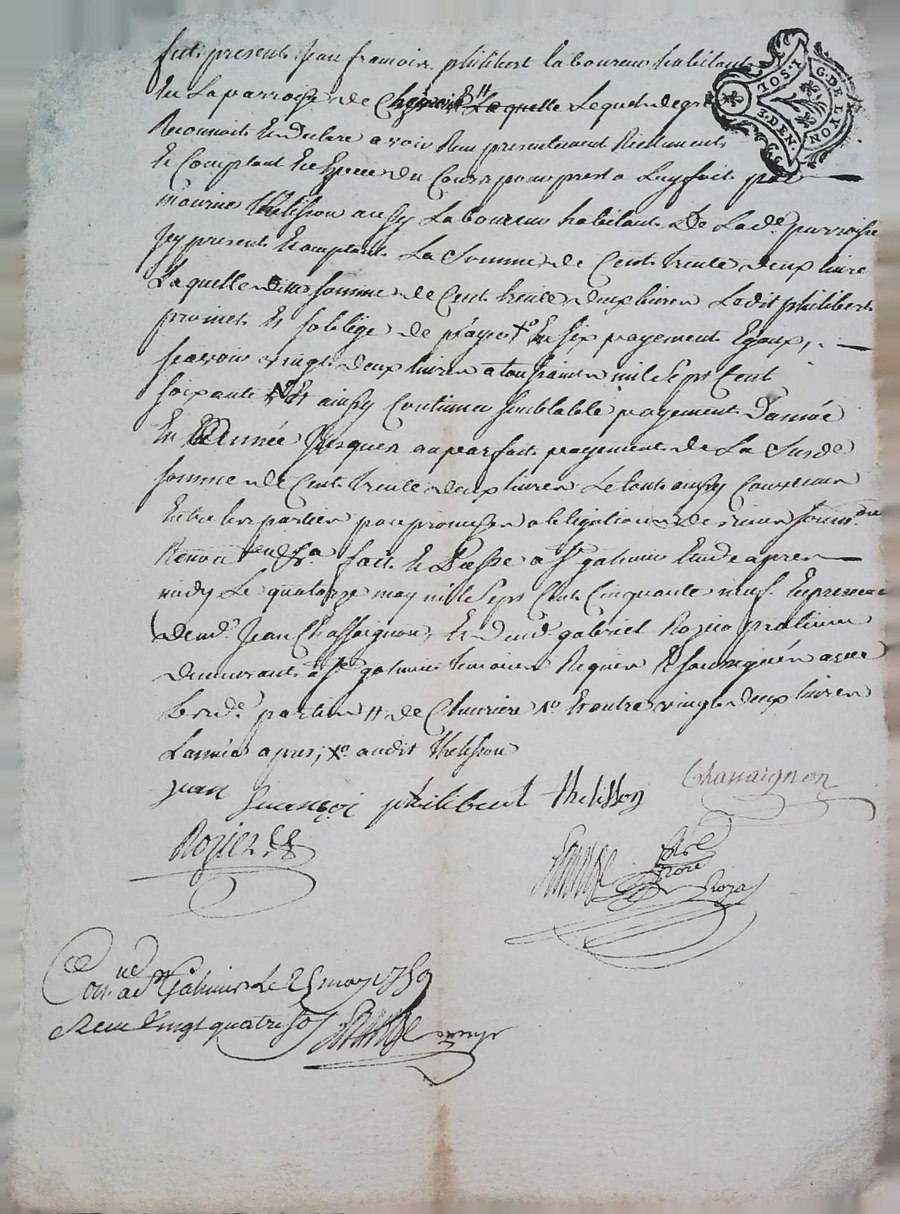 fut present Jean francois philibert laboureur habitant
En La parroisse de Laquelle Lequel de gré
Reconnoit Et declare avoir Reçu presentement Réellement
Et Comptant En Espece du Cours pour prest a Luy fait par
maurice thelisson aussy Laboureur habitant De Lade parroisse
Jcy present Et acceptant La Somme de Cent trente deux livre
Laquelle somme de Cent trente deux livres Ledit philibert
promet Et soblige de payer xo En six payement Egaux,
scavoir vingt deux livres a toussaint mil Sept Cent
soixante Et ainsy Continuer semblable payement Dannée
En Année Jusques au parfait payement de La Susde
somme de Cent trente deux livres Le tout ainsy Convenu
Entre les parties par promesse obligation de biens
Renon fait Et Passé a St galmier Etude apres
midy Le quatorze may mil Sept Cent Cinquante neuf En presence
de md Jean Chassaignon, Et de md gabriel Rozier praticien
demeurant a St galmier temoins Requis Et soussignés avec
Lesde parties // de Chevriere xo Et outre vingt deux livres
Lannée apres; xo audit thelisson
jean francoi philibert thelisson Chassaignon
Rozier
TOS. 1
3. DEN.
G. DE LYON
Con. a St Galmier Le 25 may 1759
Reçu vingt quatre sol